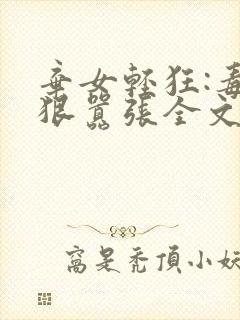 棄女輕狂:毒
狠囂張全文
窩是禿頂小妖